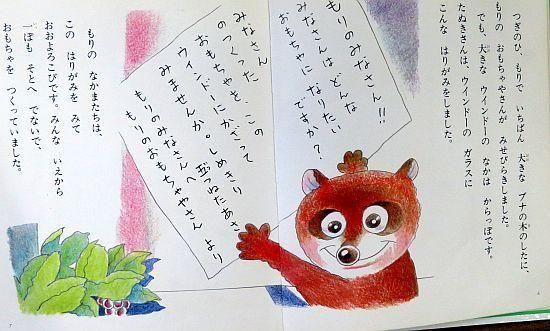 つぎのひ、もりで いちばん 大きな ブナの木のしたに、
もりの おもちゃやさんが みせびらきしました。
でも、大きな ウインドーの なかは からっぽです。
たぬきさんは、ウインドーの ガラスに
こんな はりがみをしました。
もりのみなさん!!
みなさんはどんな
おもちゃに なりたい
ですか?
みなさん
のつくった、この
おもちゃを、
ウインドーにかざって
みませんか。しめきり
あさ
もりのみなさんへ
もりのおもちゃやさん より
もりの なかまたちは、
この はりがみを みて
おおよろこびです。みんな いえから
一ぽも そとへ でないで、
おもちゃを つくっていました。
6
7